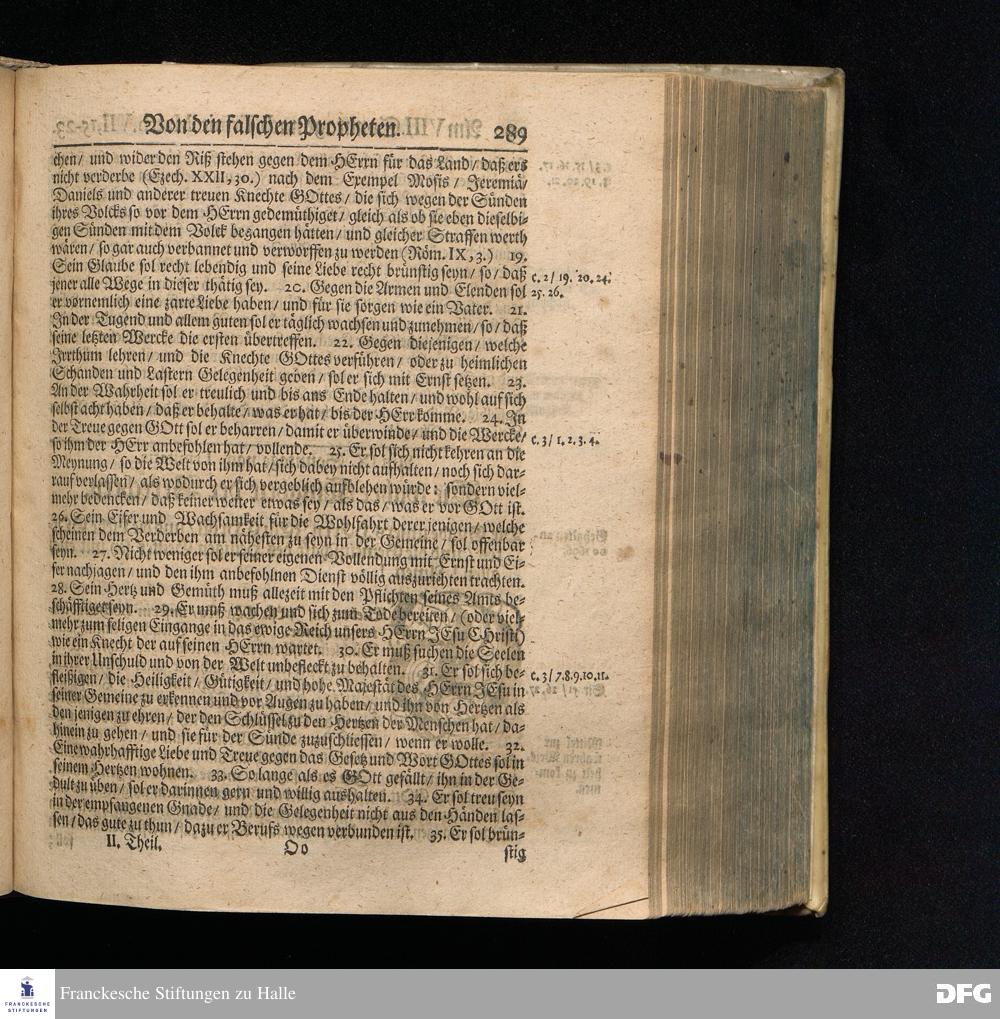 Von den falschen Propheten. 289
chen/ und wider den Riß stehen gegen dem HErrn für das Land/ daß ers
nicht verderbe (Ezech. XXII, 30.) nach dem Exempel Mosis/ Jeremiä/
Daniels und anderer treuen Knechte GOttes/ die sich wegen der Sünden
ihres Volcks so vor dem HErrn gedemüthiget/ gleich als ob sie eben dieselbi-
gen Sünden mit dem Volck begangen hätten/ und gleicher Straffen werth
wären/ so gar auch verbannet und verworffen zu werden (Röm. IX, 3.) 19.
Sein Glaube sol recht lebendig und seine Liebe recht brünstig seyn/ so/ daß
c. 2/ 19. 20. 24.
jener alle Wege in dieser thätig sey. 20. Gegen die Armen und Elenden sol
25. 26.
er vornemlich eine zarte Liebe haben/ und für sie sorgen wie ein Vater. 21.
In der Tugend und allem guten sol er täglich wachsen und zunehmen/ so/ daß
seine letzten Wercke die ersten übertreffen. 22. Gegen diejenigen/ welche
Irrthum lehren/ und die Knechte GOttes verführen/ oder zu heimlichen
Schanden und Lastern Gelegenheit geben/ sol er sich mit Ernst setzen. 23.
An der Wahrheit sol er treulich und bis ans Ende halten/ und wohl auf sich
selbst acht haben/ daß er behalte/ was er hat/ bis der HErr komme. 24. In
der Treue gegen GOtt sol er beharren/ damit er überwinde/ und die Wercke/
c. 3/ 1. 2. 3. 4.
so ihm der HErr anbefohlen hat/ vollende. 25. Er sol sich nicht kehren an die
Meynung/ so die Welt von ihm hat/ sich dabey nicht aufhalten/ noch sich dar-
rauf verlassen/ als wodurch er sich vergeblich aufblehen würde: sondern viel-
mehr bedencken/ daß keiner weiter etwas sey/ als das/ was er vor GOtt ist.
26. Sein Eifer und Wachsamkeit für die Wohlfahrt derer jenigen/ welche
scheinen dem Verderben am nähesten zu seyn in der Gemeine/ sol offenbar
seyn. 27. Nicht weniger sol er seiner eigenen Vollendung mit Ernst und Ei-
fer nachjagen/ und den ihm anbefohlnen Dienst völlig auszurichten trachten.
28. Sein Hertz und Gemüth muß allezeit mit den Pflichten seines Amts be-
schäfftiget seyn. 29. Er muß wachen und sich zum Tode bereiten/ (oder viel-
mehr zum seligen Eingange in das ewige Reich unsers HErrn JEsu CHristi)
wie ein Knecht der auf seinen HErrn wartet. 30. Er muß suchen die Seelen
in ihrer Unschuld und von der Welt unbefleckt zu behalten. 31. Er sol sich be-
c. 3/ 7. 8. 9. 10. 11.
fleißigen/ die Heiligkeit/ Gütigkeit/ und hohe Majestät des HErrn JEsu in
seiner Gemeine zu erkennen und vor Augen zu haben/ und ihn von Hertzen als
den jenigen zu ehren/ der den Schlüssel zu den Hertzen der Menschen hat/ da-
hinein zu gehen/ und sie für der Sünde zuzuschliessen/ wenn er wolle. 32.
Eine wahrhafftige Liebe und Treue gegen das Gesetz und Wort GOttes sol in
seinem Hertzen wohnen. 33. So lange als es GOtt gefällt/ ihn in der Ge-
dult zu üben/ sol er darinnen gern und willig aushalten. 34. Er sol treu seyn
in der empfangenen Gnade/ und die Gelegenheit nicht aus den Händen las-
sen/ das gute zu thun/ dazu er Berufs wegen verbunden ist. 35. Er sol brün-
II. Theil. Oo stig
FRANCKESCHE
STIFTUNGEN
Franckesche Stiftungen zu Halle
DFG